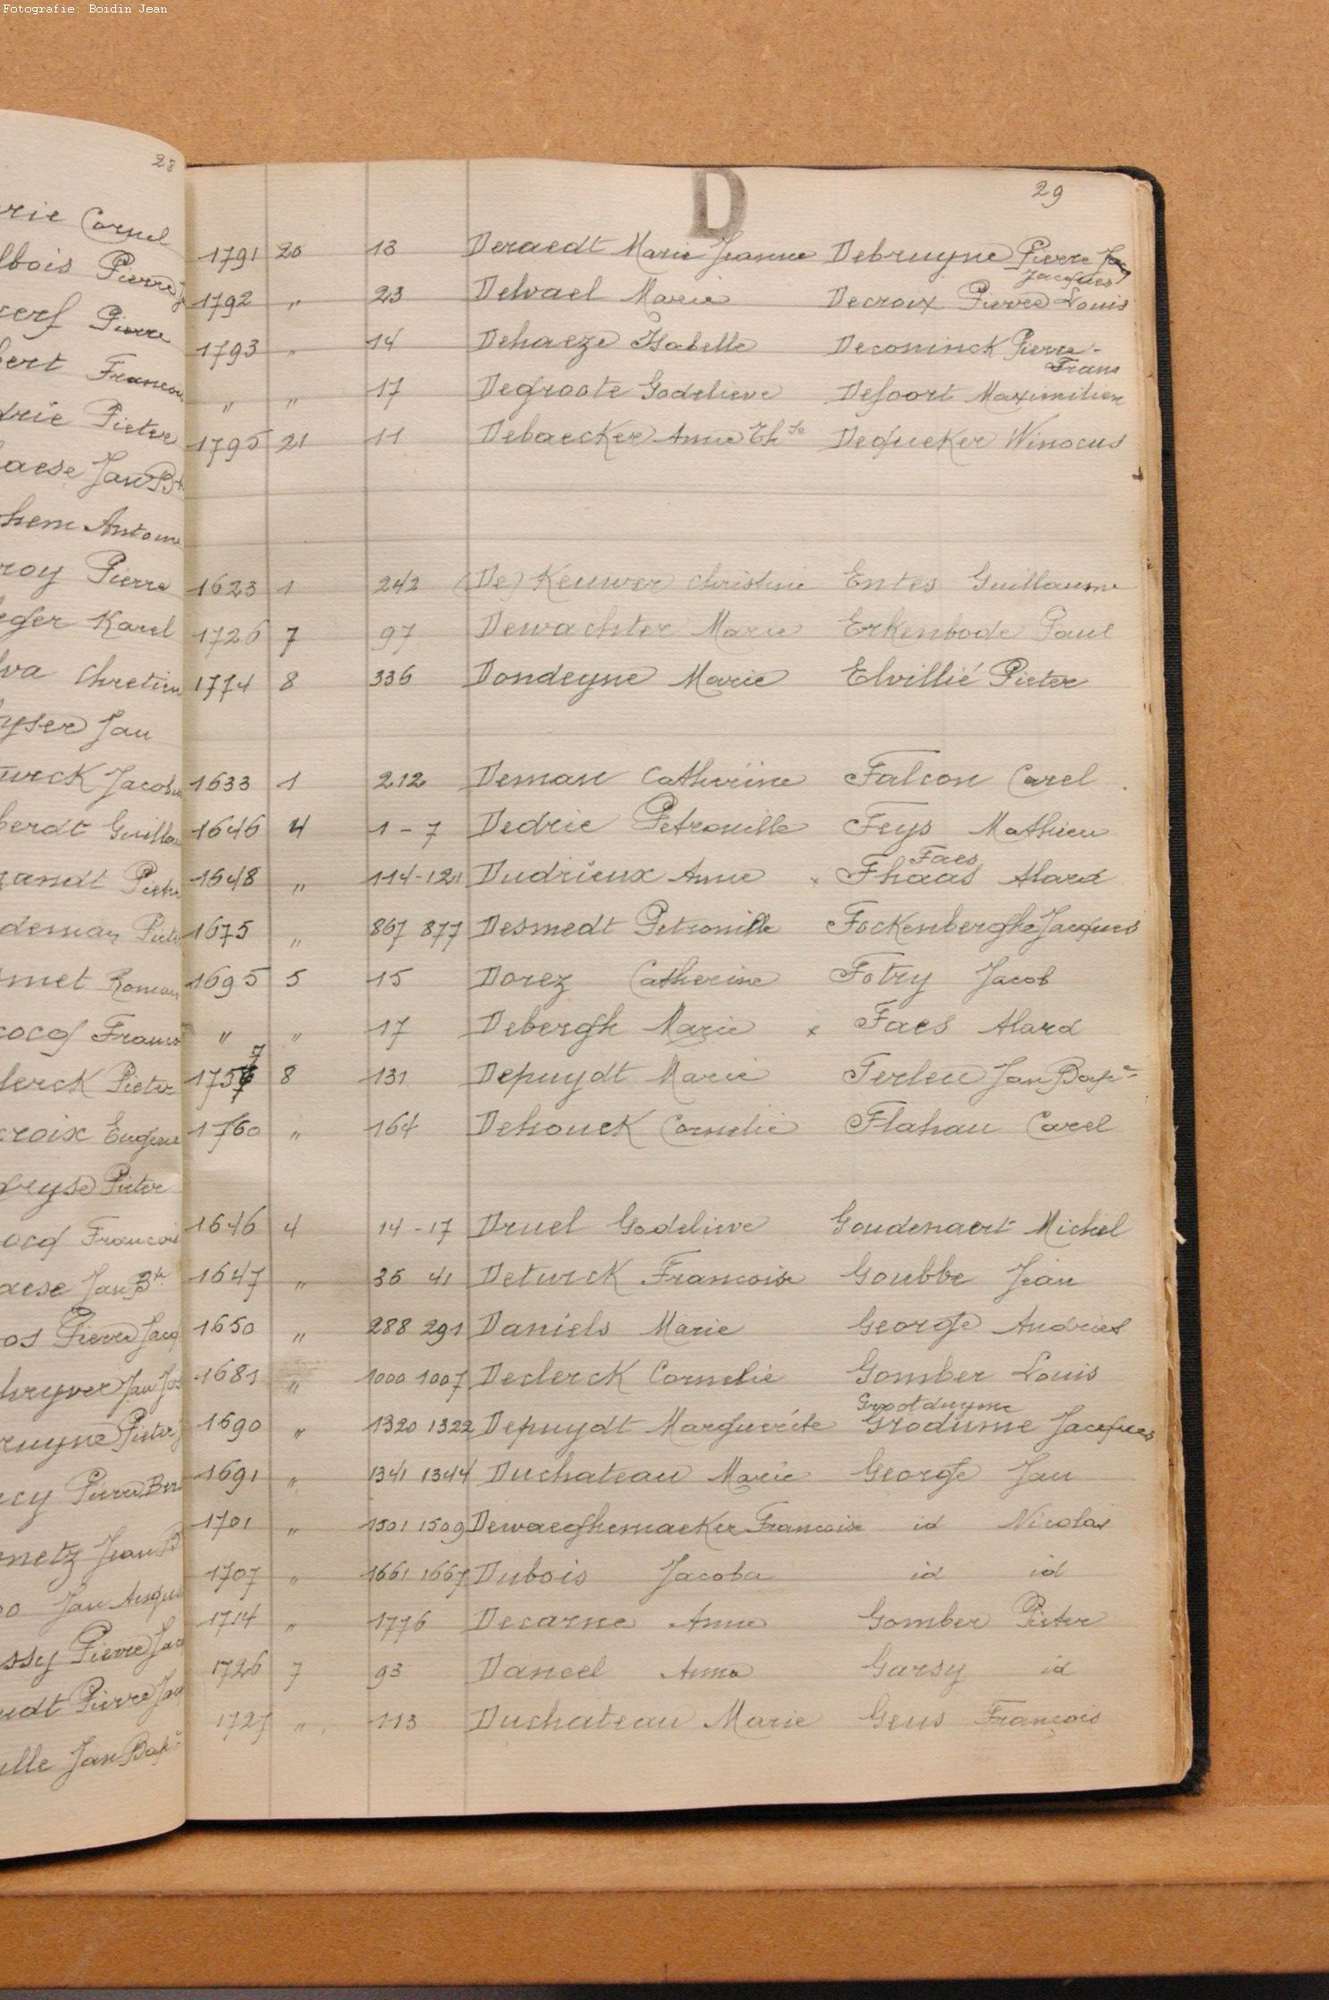 Fotografie: Boidin Jean
28
rie Cornel
lbois Pierre
cerf Pierre
bert Francois
drie Pieter
aese Jan Bt
hem Antoine
roy Pierre
eger Karel
lva Chretien
yser Jan
urck Jacobus
berdt Guillau
randt Pieter
deman Pieter
smet Roman
cocq Francois
lerck Pieter
croix Eugene
vryse Pieter
ocq Francois
aese Jan Bte
os Pierre Jacq
hryver Jan Jos
ruyne Pieter J
ecy Pierre Ben
metz Jean B
oo Jan Augus
ssy Pierre Jac
udt Pierre Jac
ille Jan Bapt
D
29
1791 20 13 Deraedt Marie Jeanne Debruyne Pierre Jac
Jacques
1792 " 23 Delvael Marie Decroix Pierre Louis
1793 " 14 Dehaeze Isabelle Deconinck Pierre-
Frans
" " 17 Degroote Godelieve Defoort Maximilien
1795 21 11 Debaecker Anne Thse Dequeker Winocus
1623 1 242 (De) Keuwer Christine Entes Guillaume
1726 7 97 Dewachter Marie Erkenbode Paul
1774 8 336 Dondeyne Marie Elvillié Pieter
1633 1 212 Deman Catherine Falcon Carel
1646 4 1-7 Dedrie Petronille Feys Mathieu
Faes
1648 " 114-121 Dudrieux Anne x Fhaas Alard
1675 " 867 877 Desmedt Petronille Fockenberghe Jacques
1695 5 15 Dorez Catherine Fotry Jacob
" " 17 Debergh Marie x Faes Alard
1757 8 131 Depuydt Marie Ferleu Jan Bapt
1760 " 164 Dehouck Cornelie Flahau Carel
1646 4 14-17 Druel Godelieve Goudenaert Michel
1647 " 36 41 Deturck Francoise Goubbe Jean
1650 " 288 291 Daniels Marie George Andries
1681 " 1000 1007 Declerck Cornelie Gomber Louis
Grootduyme
1690 " 1320 1322 Depuydt Marguerite Grodume Jacques
1691 " 1341 1344 Duchateau Marie George Jan
1701 " 1501 1509 Dewaeghemaeker Francoise id Nicolas
1707 " 1661 1667 Dubois Jacoba id id
1714 " 1776 Decarne Anne Gomber Pieter
1726 7 93 Daneel Anna Garsy id
1727 " 113 Duchateau Marie Geus François